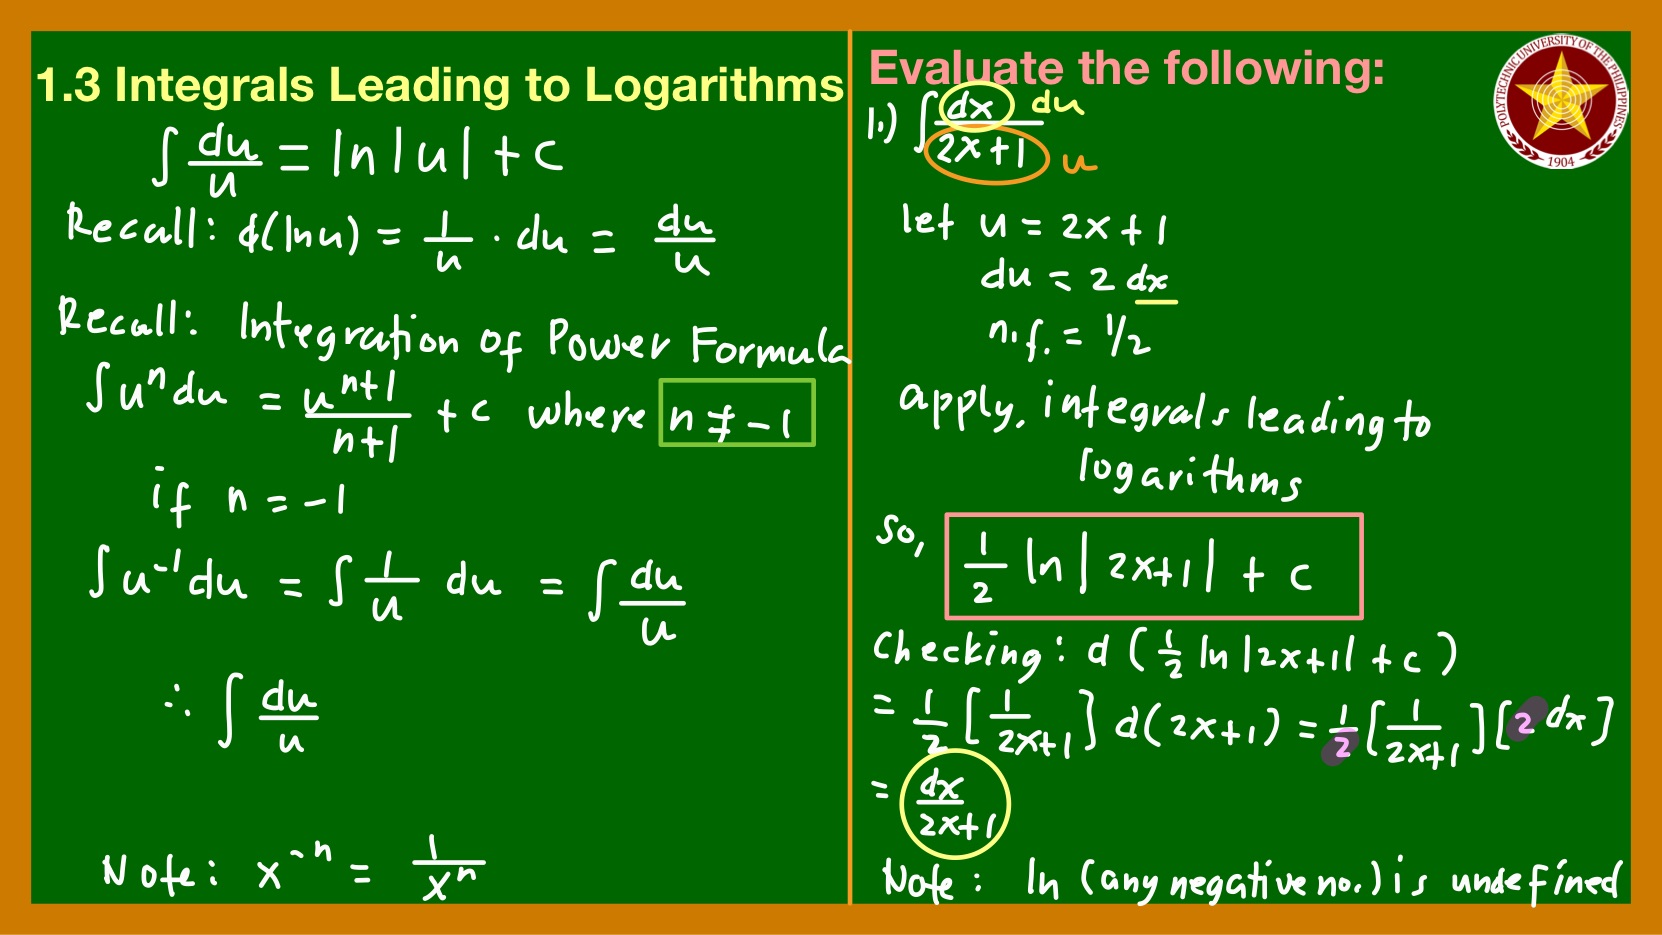 1.3 Integrals Leading to Logarithms
∫ du/u = ln|u| + c
Recall: d(ln u) = 1/u · du = du/u
Recall: Integration of Power Formula
∫uⁿ du = uⁿ⁺¹/n+1 + c where n ≠ -1
if n = -1
∫u⁻¹du = ∫ 1/u du = ∫ du/u
∴ ∫ du/u
Note: x⁻ⁿ = 1/xⁿ
Evaluate the following:
1.) ∫ dx/2x+1 du u
let u = 2x+1
du = 2 dx
n.f. = 1/2
apply, integrals leading to
logarithms
so, 1/2 ln|2x+1| + c
Checking: d (1/2 ln|2x+1| + c)
= 1/2 [1/2x+1] d(2x+1) = 1/2 [1/2x+1] [2dx]
= dx/2x+1
Note: ln (any negative no.) is undefined
POLYTECHNIC UNIVERSITY OF THE PHILIPPINES
1904